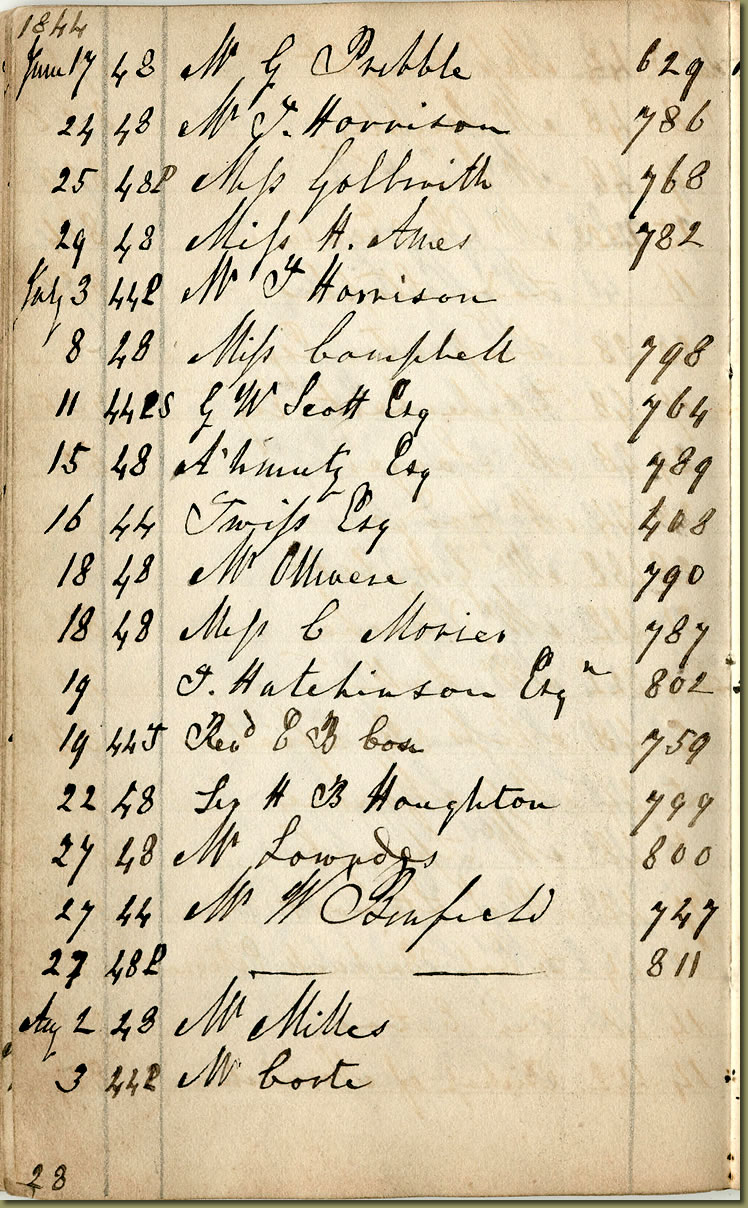 1844
June 17 48 Mr G Pribble 629
24 48 Mr T. Horrison 786
25 48P Miss Goldsmith 768
29 48 Miss H. Ames 782
July 3 44P Mr T Horrison
8 48 Miss Campbell 798
11 44PS G W Scott Esq 764
15 48 Esq 789
16 44 Twiss Esq 408
18 48 Mr 790
18 48 Miss C Morier 787
19 T. Hutchinson Esqr 802
19 44T Revd E B Cox 759
22 48 H B Houghton 799
27 48 Mr Lowndes 800
27 44 Mr W Benfield 747
27 48P — — 811
Aug 2 48 Mr Milles
3 44P Mr Coote
28